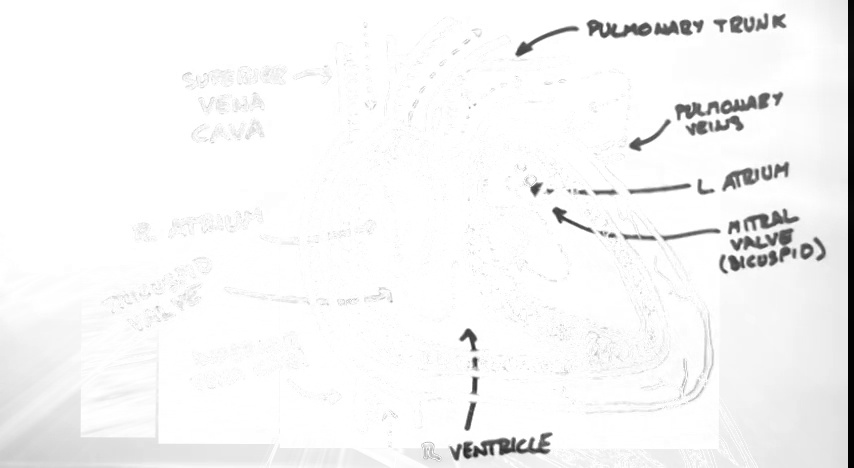 PULMONARY TRUNK
SUPERIOR
VENA
CAVA
PULMONARY
VEINS
L. ATRIUM
R. ATRIUM
MITRAL
VALVE
(BICUSPID)
TRICUSPID
VALVE
R. VENTRICLE